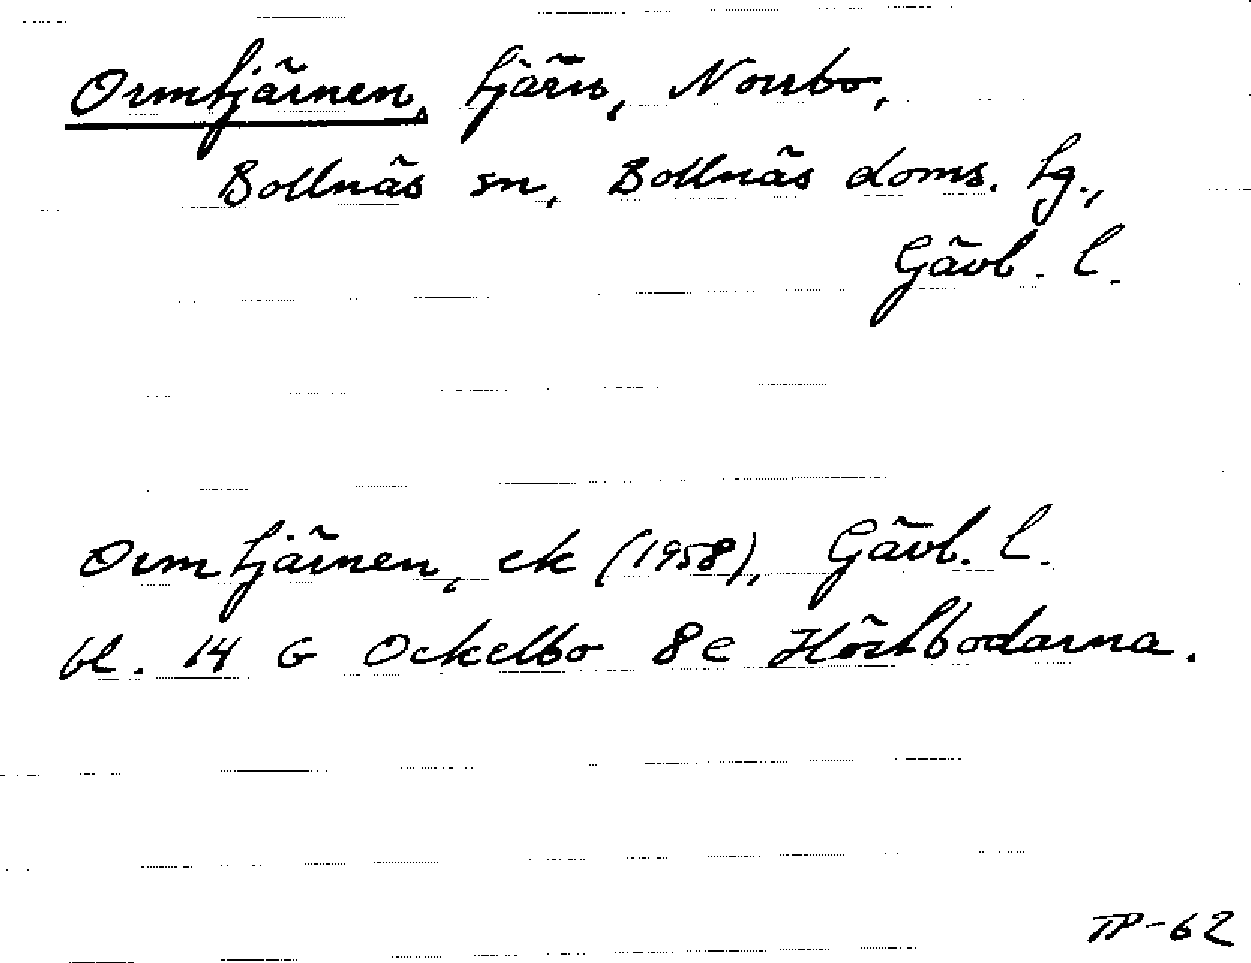 Ormtjärnen, tjärn, Norrbo,
Bollnäs sn, Bollnäs doms. tg.,
Gävl. l.
Ormtjärnen, ek (1958), Gävl. l.
bl. 14 G Ockelbo 8 e Höstbodarna.
TP-62